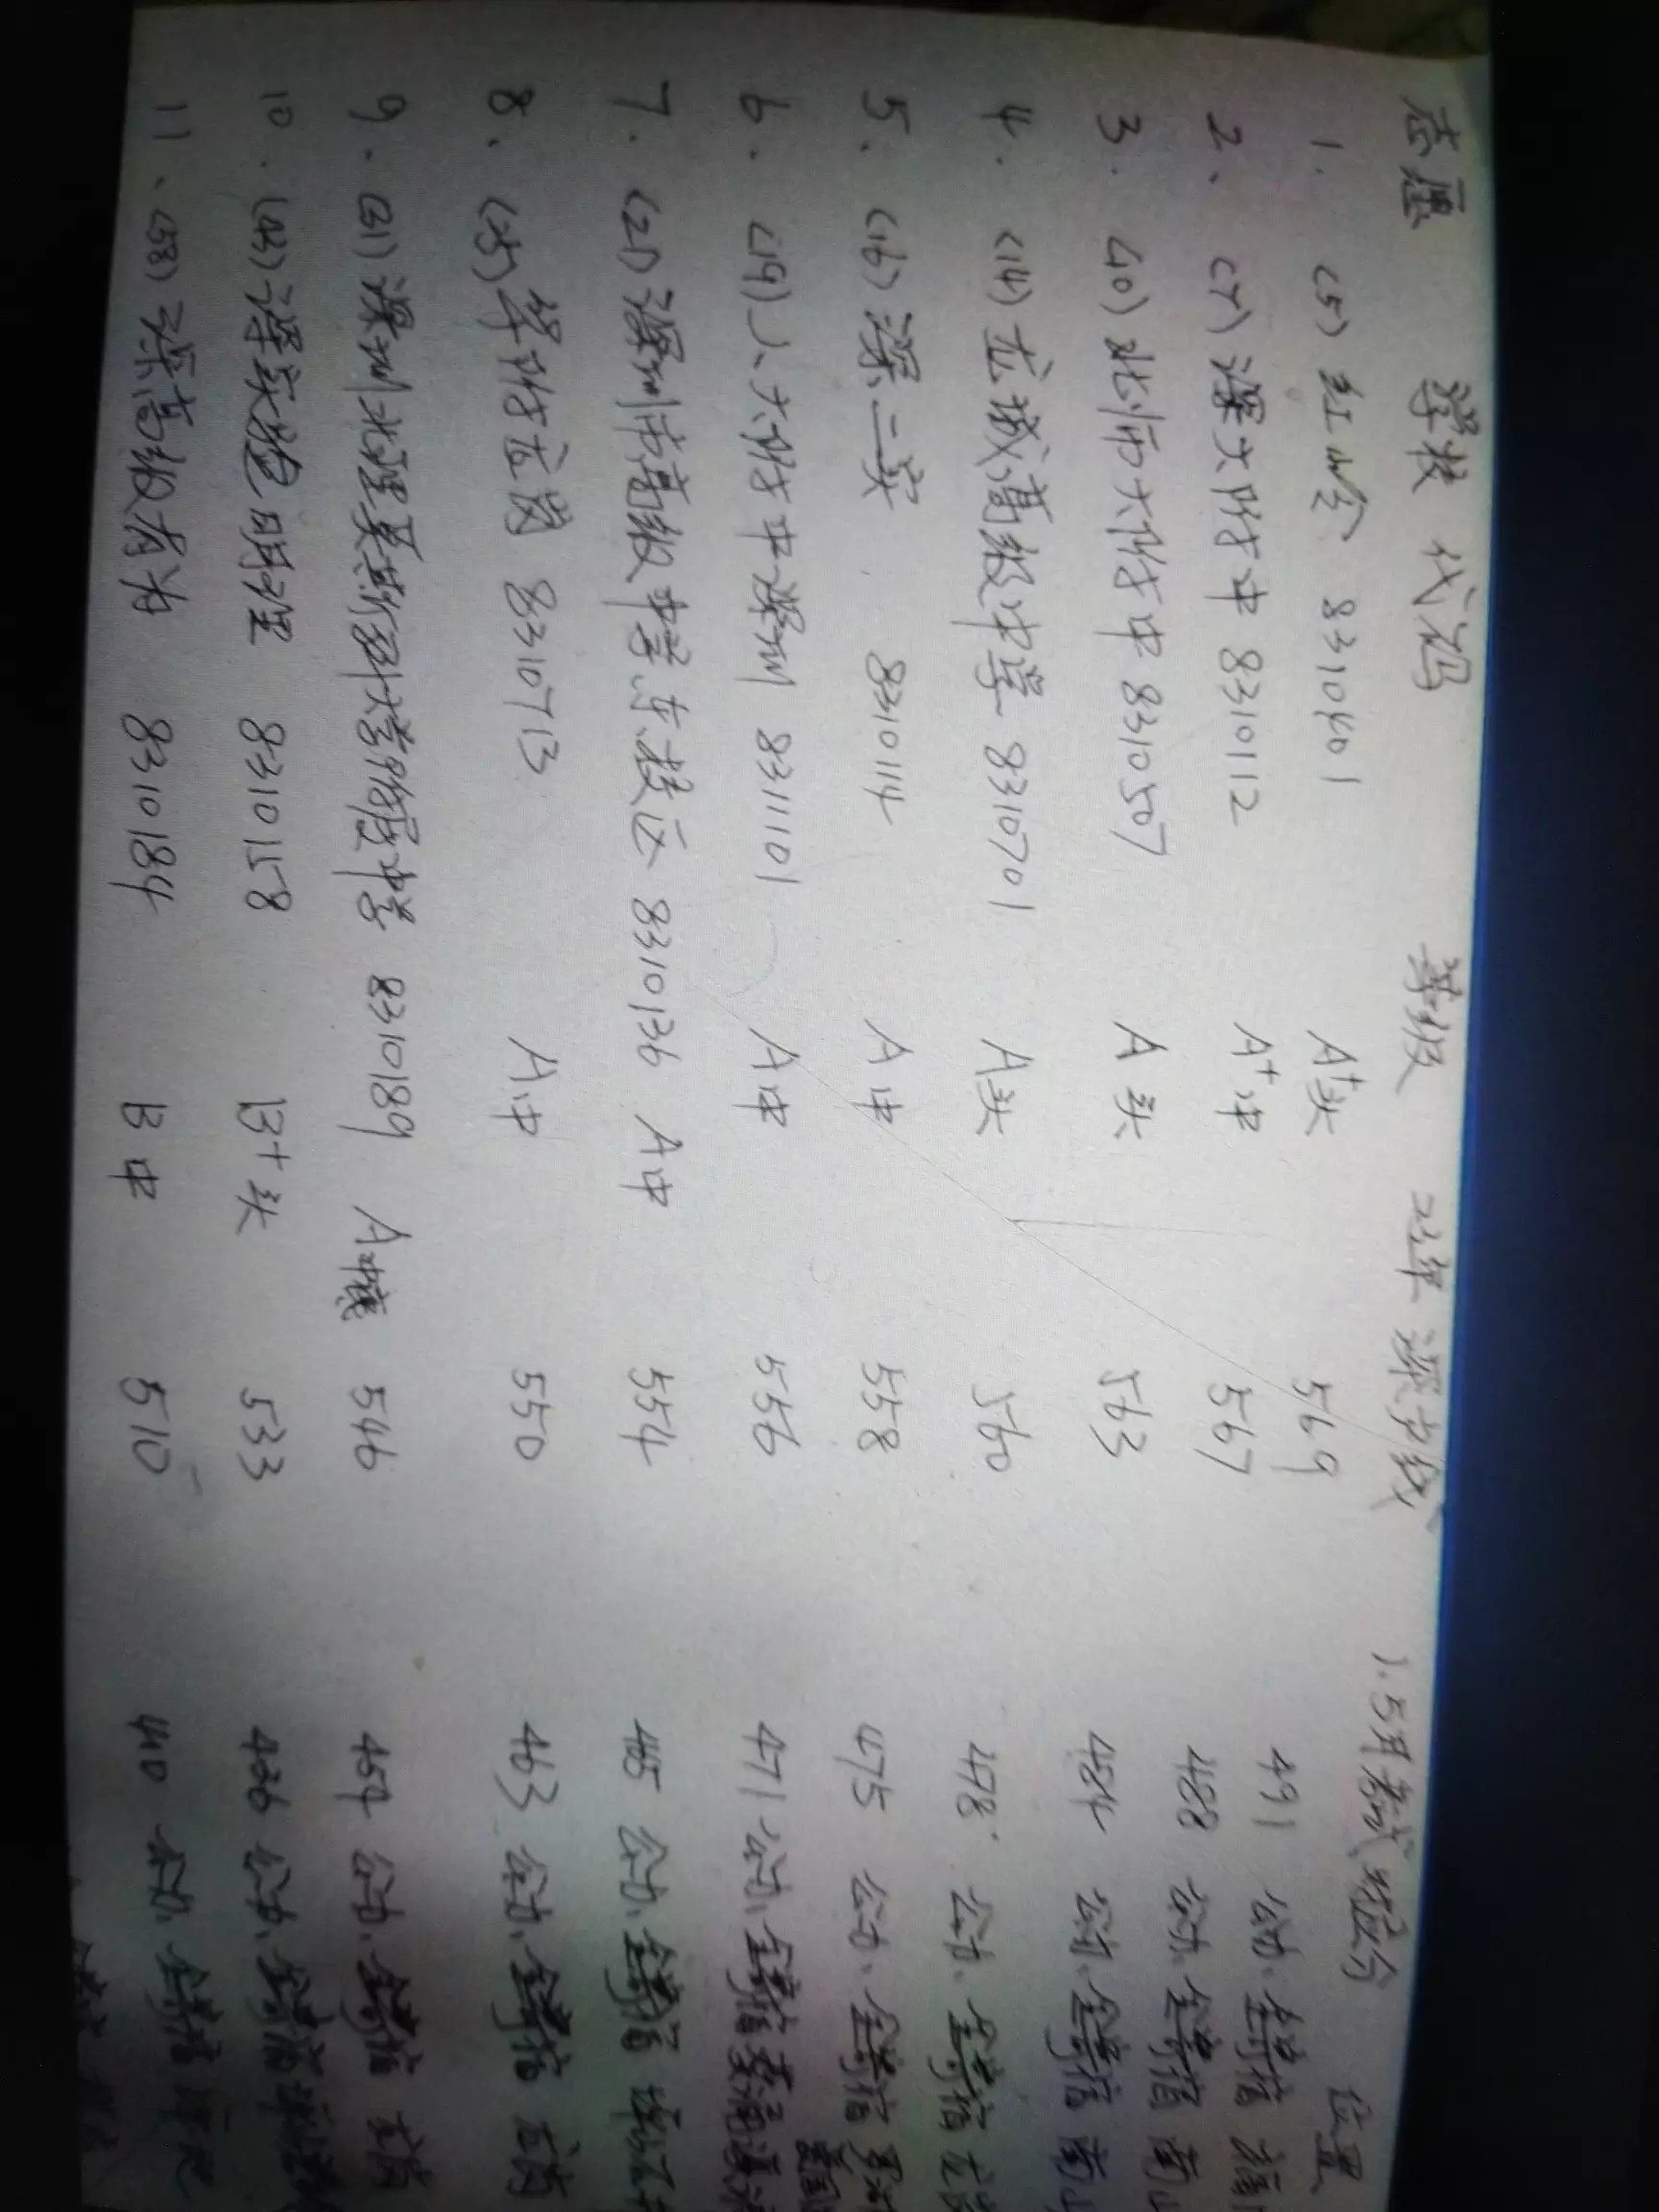 志愿 学校 代码 等级 22年录分数 1.5月考试预估分 位置
1. (5) 红岭 8310401 A+头 569 491 公办、全寄宿 福田
2、(7) 深大附中 8310112 A+中 567 488 公办、全寄宿 南山
3. (10) 北师大附中 8310507 A 头 563 484 公办、全寄宿 南山
4. (14) 龙城高级中学 8310701 A头 560 478 公办、全寄宿 龙岗
5、(16) 深二实 8310114 A中 558 475 公办、全寄宿
6. (19) 人大附中深圳 8311101 A中 556 471 公办、全寄宿
7. (21) 深圳市高级中学东校区 8310136 A中 554 465 公办、全寄宿
8、(25) 华附龙岗 8310713 A中 550 463 公办、全寄宿 龙岗
9. (31) 深圳北理莫斯科大学附属中学 8310189 A中 546 459 公办、全寄宿 龙岗
10. (43) 深实验明理 8310158 B+头 533 436 公办、全寄宿
11、(58) 深高级有为 8310184 B中 510 410 公办、全寄宿